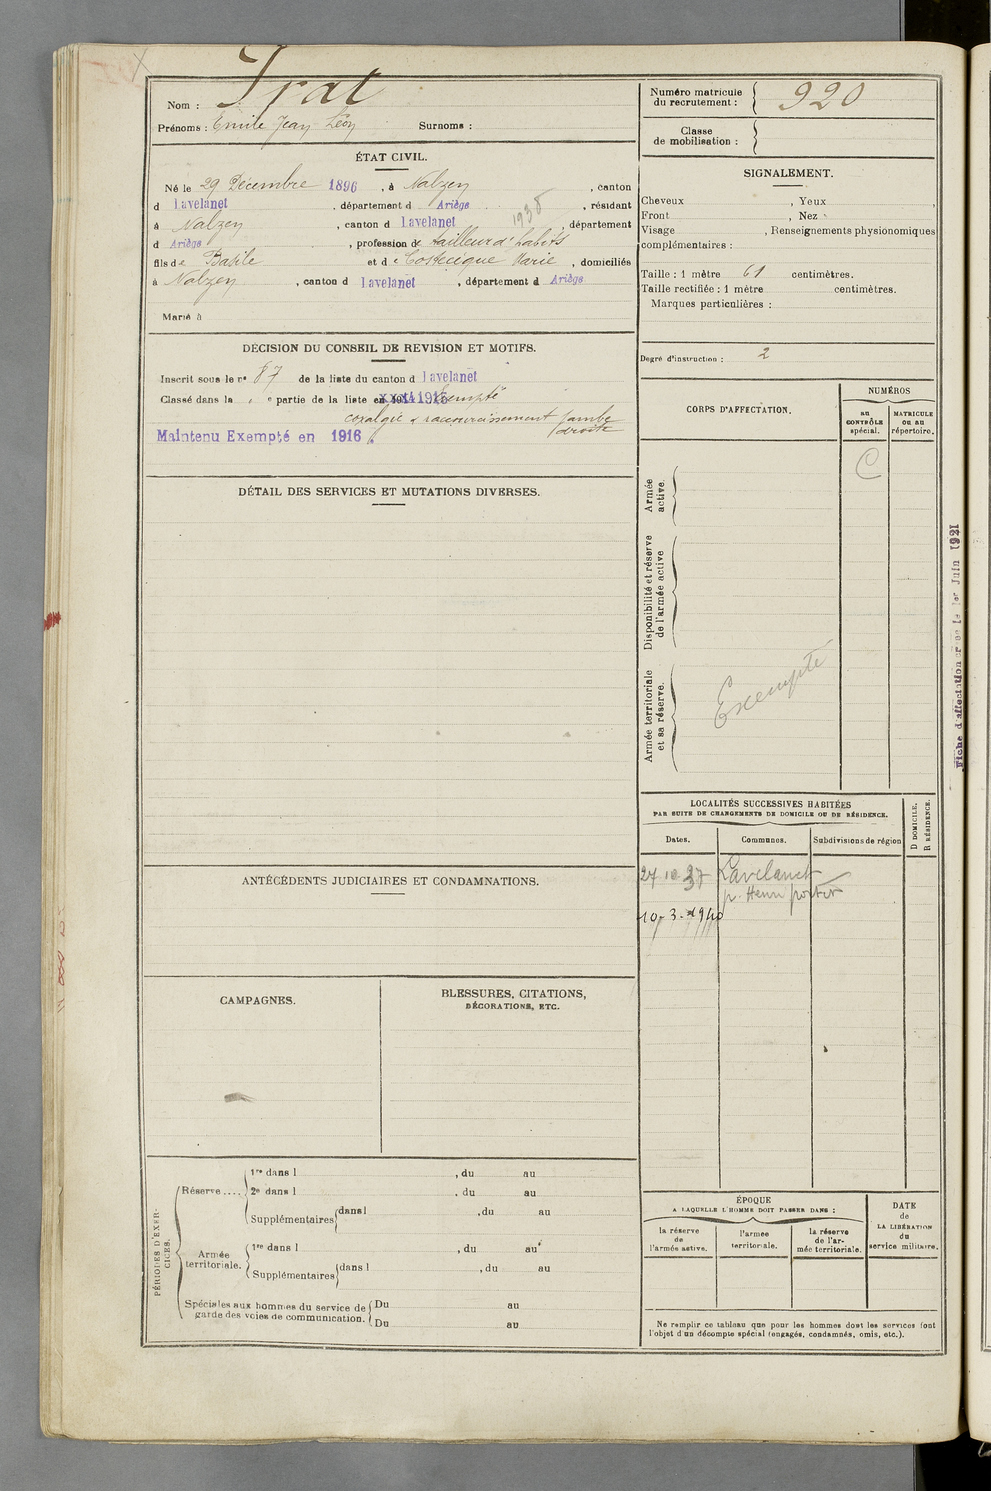 Nom : Irat
Prénoms : Emile Jean Léon Surnoms :
Numéro matricule du recrutement : 920
Classe de mobilisation :
ÉTAT CIVIL.
Né le 29 Décembre 1896, à Nalzen, canton
d Lavelanet, département d Ariège, résidant
1938
à Nalzen, canton d Lavelanet, département
d Ariège, profession de tailleur d'habits
fils de Basile et de Costecèque Marie, domiciliés
à Nalzen, canton d Lavelanet, département d Ariège
Marié à
SIGNALEMENT.
Cheveux , Yeux ,
Front , Nez
Visage , Renseignements physionomiques
complémentaires :
Taille : 1 mètre 61 centimètres.
Taille rectifiée : 1 mètre centimètres.
Marques particulières :
Degré d'instruction : 2
DÉCISION DU CONSEIL DE REVISION ET MOTIFS.
Inscrit sous le n° 87 de la liste du canton d Lavelanet
Classé dans la e partie de la liste en 1915 Exempté
coxalgie & raccourcissement jambe
droite
Maintenu Exempté en 1916.
DÉTAIL DES SERVICES ET MUTATIONS DIVERSES.
CORPS D'AFFECTATION.
NUMÉROS
au CONTRÔLE spécial.
MATRICULE ou au répertoire.
C
Armée active.
Disponibilité et réserve de l'armée active
Armée territoriale et sa réserve.
Exempté
Fiche d'affectation créée le 1er Juin 1921
LOCALITÉS SUCCESSIVES HABITÉES
PAR SUITE DE CHANGEMENTS DE DOMICILE OU DE RÉSIDENCE.
D DOMICILE.
R RÉSIDENCE.
Dates. Communes. Subdivisions de région
27 10 37 Lavelanet
10-3-1940
ANTÉCÉDENTS JUDICIAIRES ET CONDAMNATIONS.
CAMPAGNES.
BLESSURES, CITATIONS,
DÉCORATIONS, ETC.
PÉRIODES D'EXERCICES.
Réserve....
1re dans l , du au
2e dans l , du au
Supplémentaires dans l , du au
Armée territoriale.
1re dans l , du au
Supplémentaires dans l , du au
Spéciales aux hommes du service de
garde des voies de communication.
Du au
Du au
ÉPOQUE
A LAQUELLE L'HOMME DOIT PASSER DANS :
la réserve de l'armée active.
l'armée territoriale.
la réserve de l'armée territoriale.
DATE de LA LIBÉRATION du service militaire.
Ne remplir ce tableau que pour les hommes dont les services font
l'objet d'un décompte spécial (engagés, condamnés, omis, etc.).